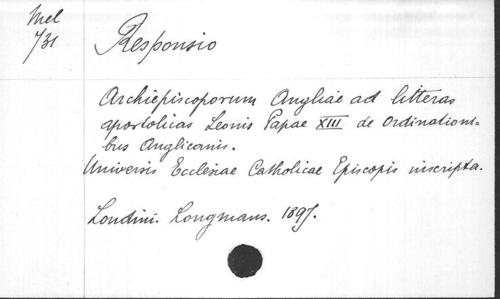 Mel
/31
Responsio
Archiepiscoporum Angliae ad litteras
apostolicas Leonis Papae XIII de Ordinationi-
bus Anglicanis.
Universis Ecclesiae Catholicae Episcopis inscripta.
Londini. Longmans. 1897.